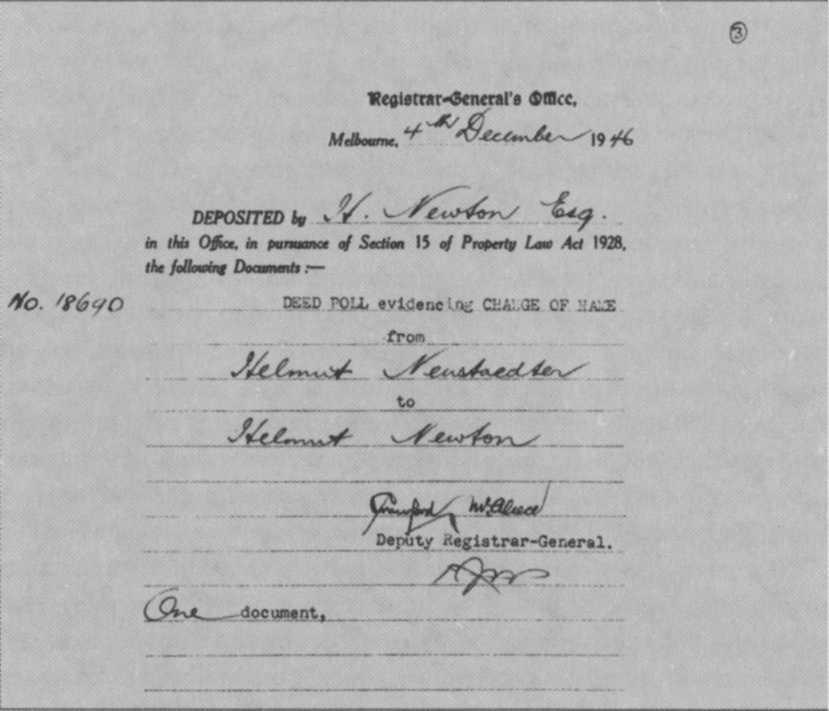 ③
Registrar-General's Office,
Melbourne, 4th December 1946
DEPOSITED by H. Newton Esq.
in this Office, in pursuance of Section 15 of Property Law Act 1928,
the following Documents :—
No. 18690 DEED POLL evidencing CHANGE OF NAME
from
Helmut Neustaedter
to
Helmut Newton
Crawford
Deputy Registrar-General.
One document,